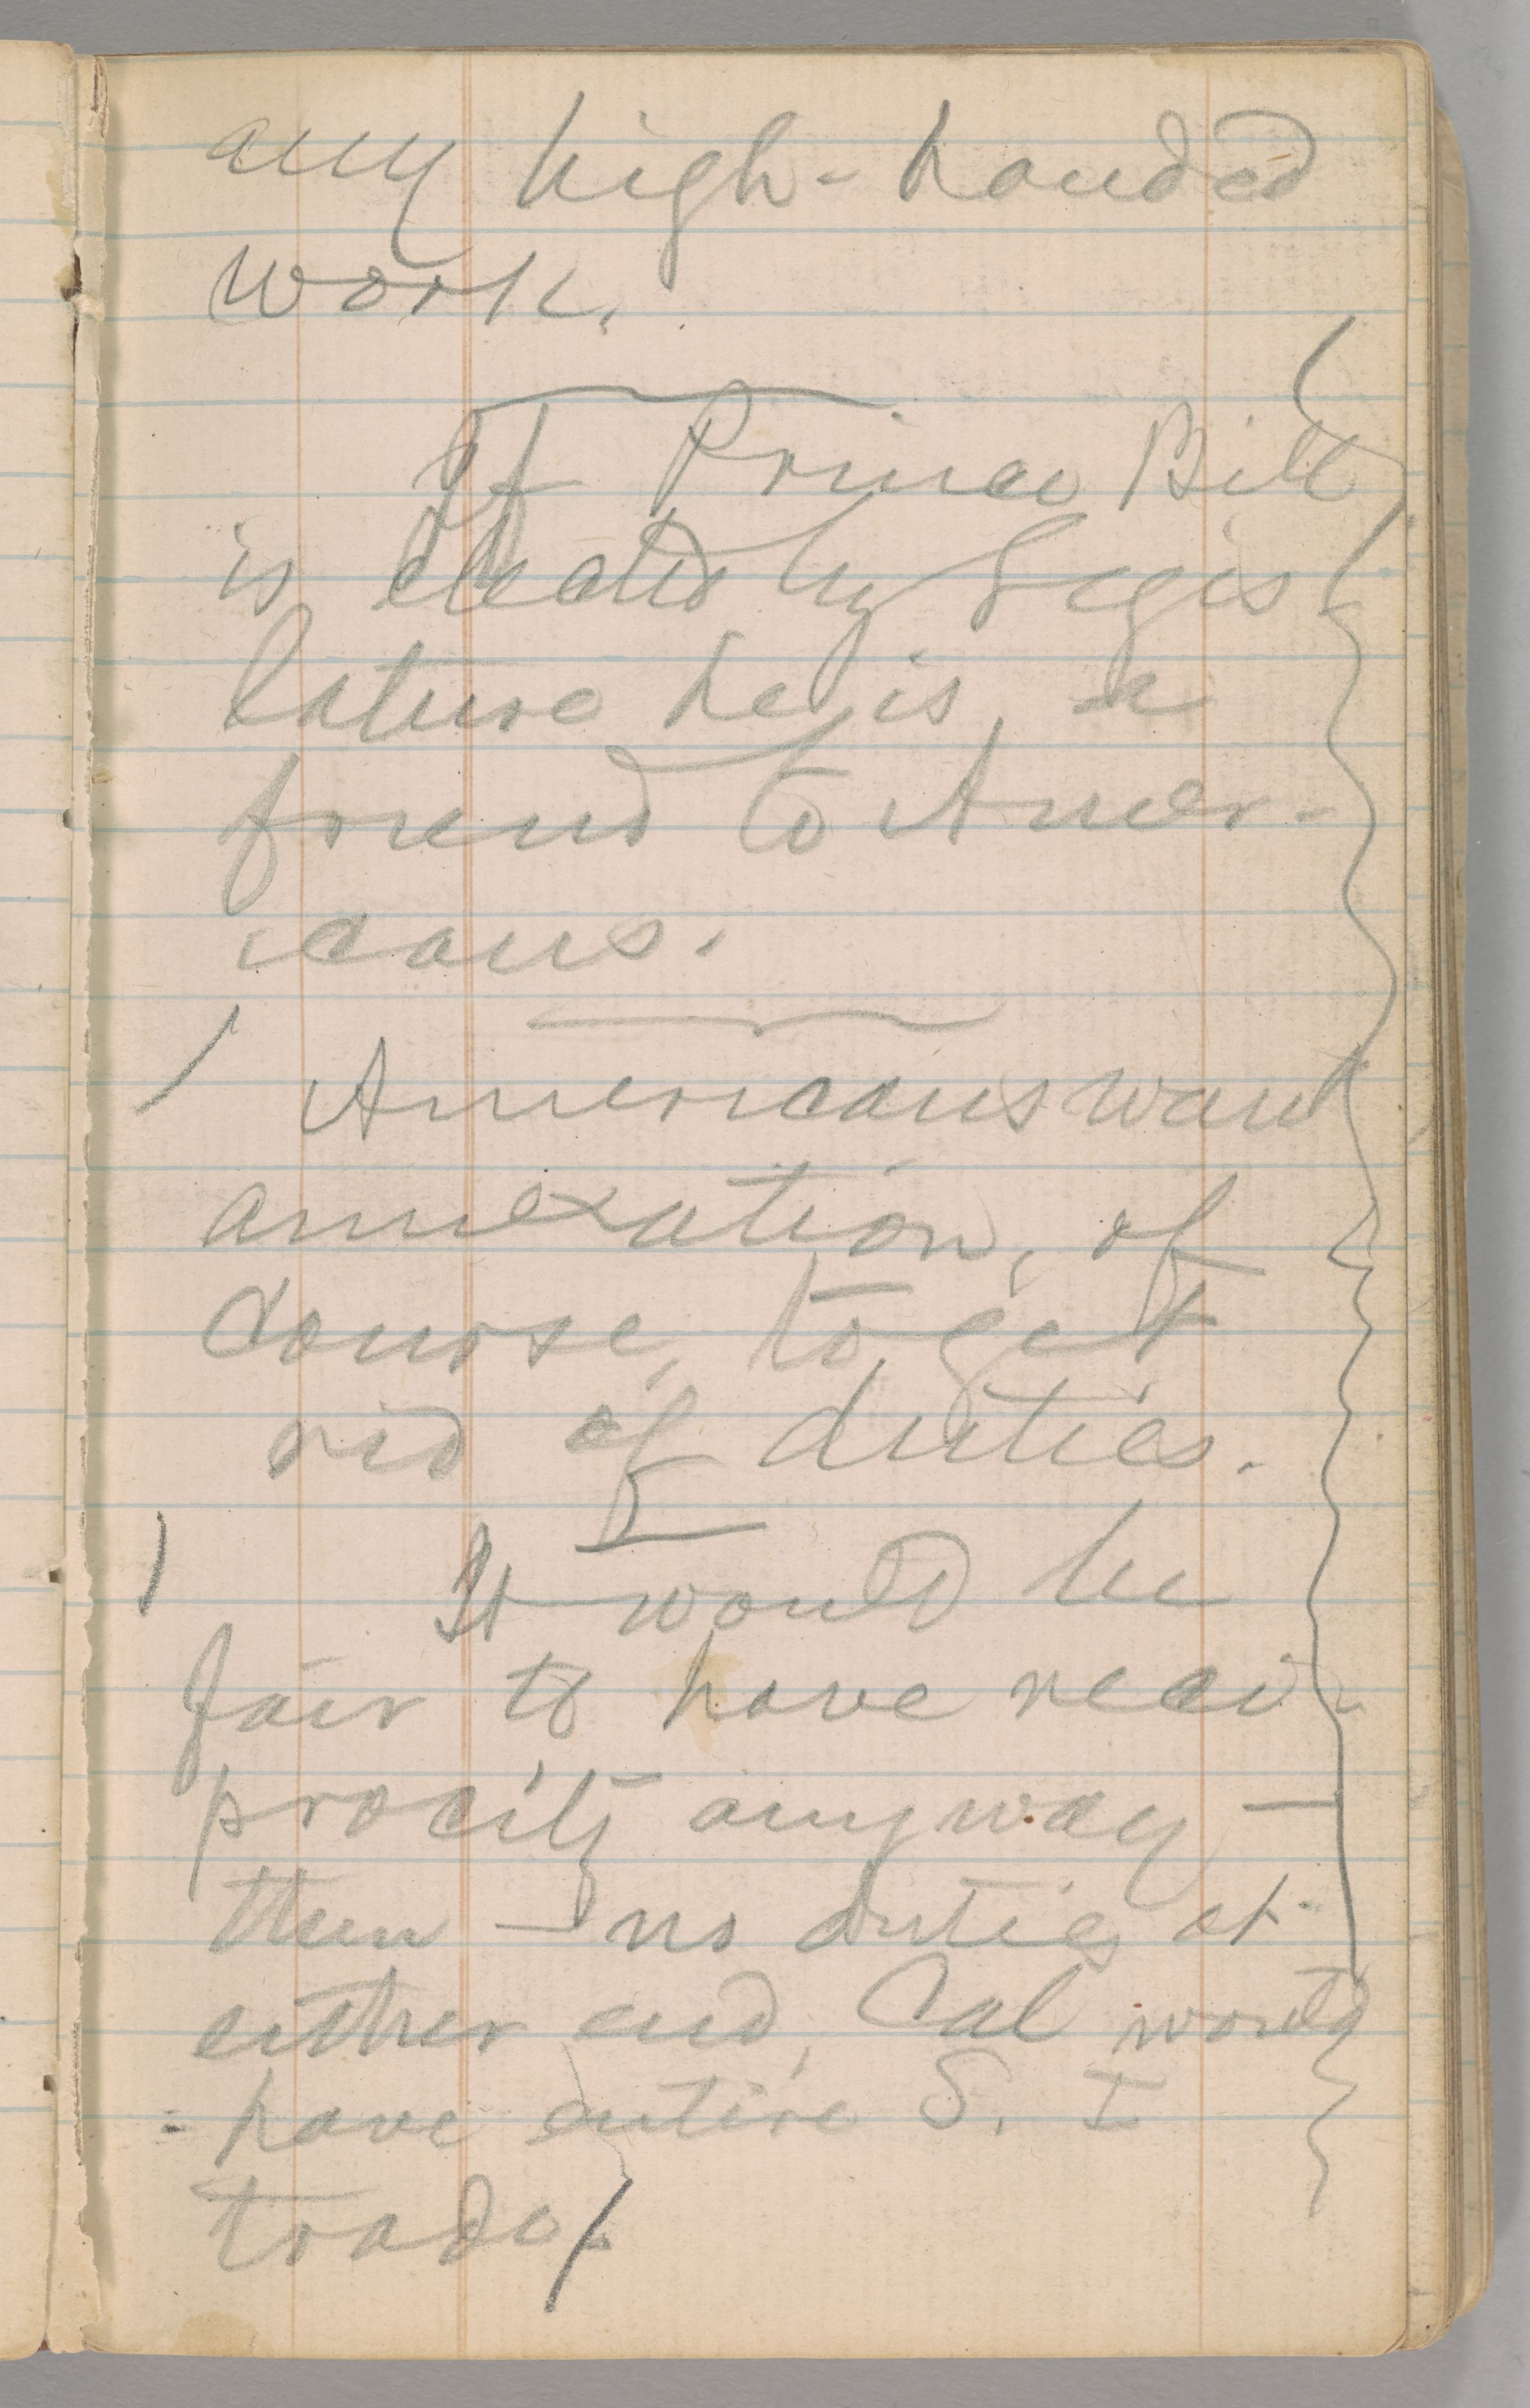 any high-handed
work.
If Prince Bill
is elected by Legis
lature he is a
friend to Amer-
icans.
Americans want
annexation, of
course, to get
rid of duties.
It would be
fair to have reci-
procity anyway —
then — no duties at
either end, Cal would
have entire S. I
trade.